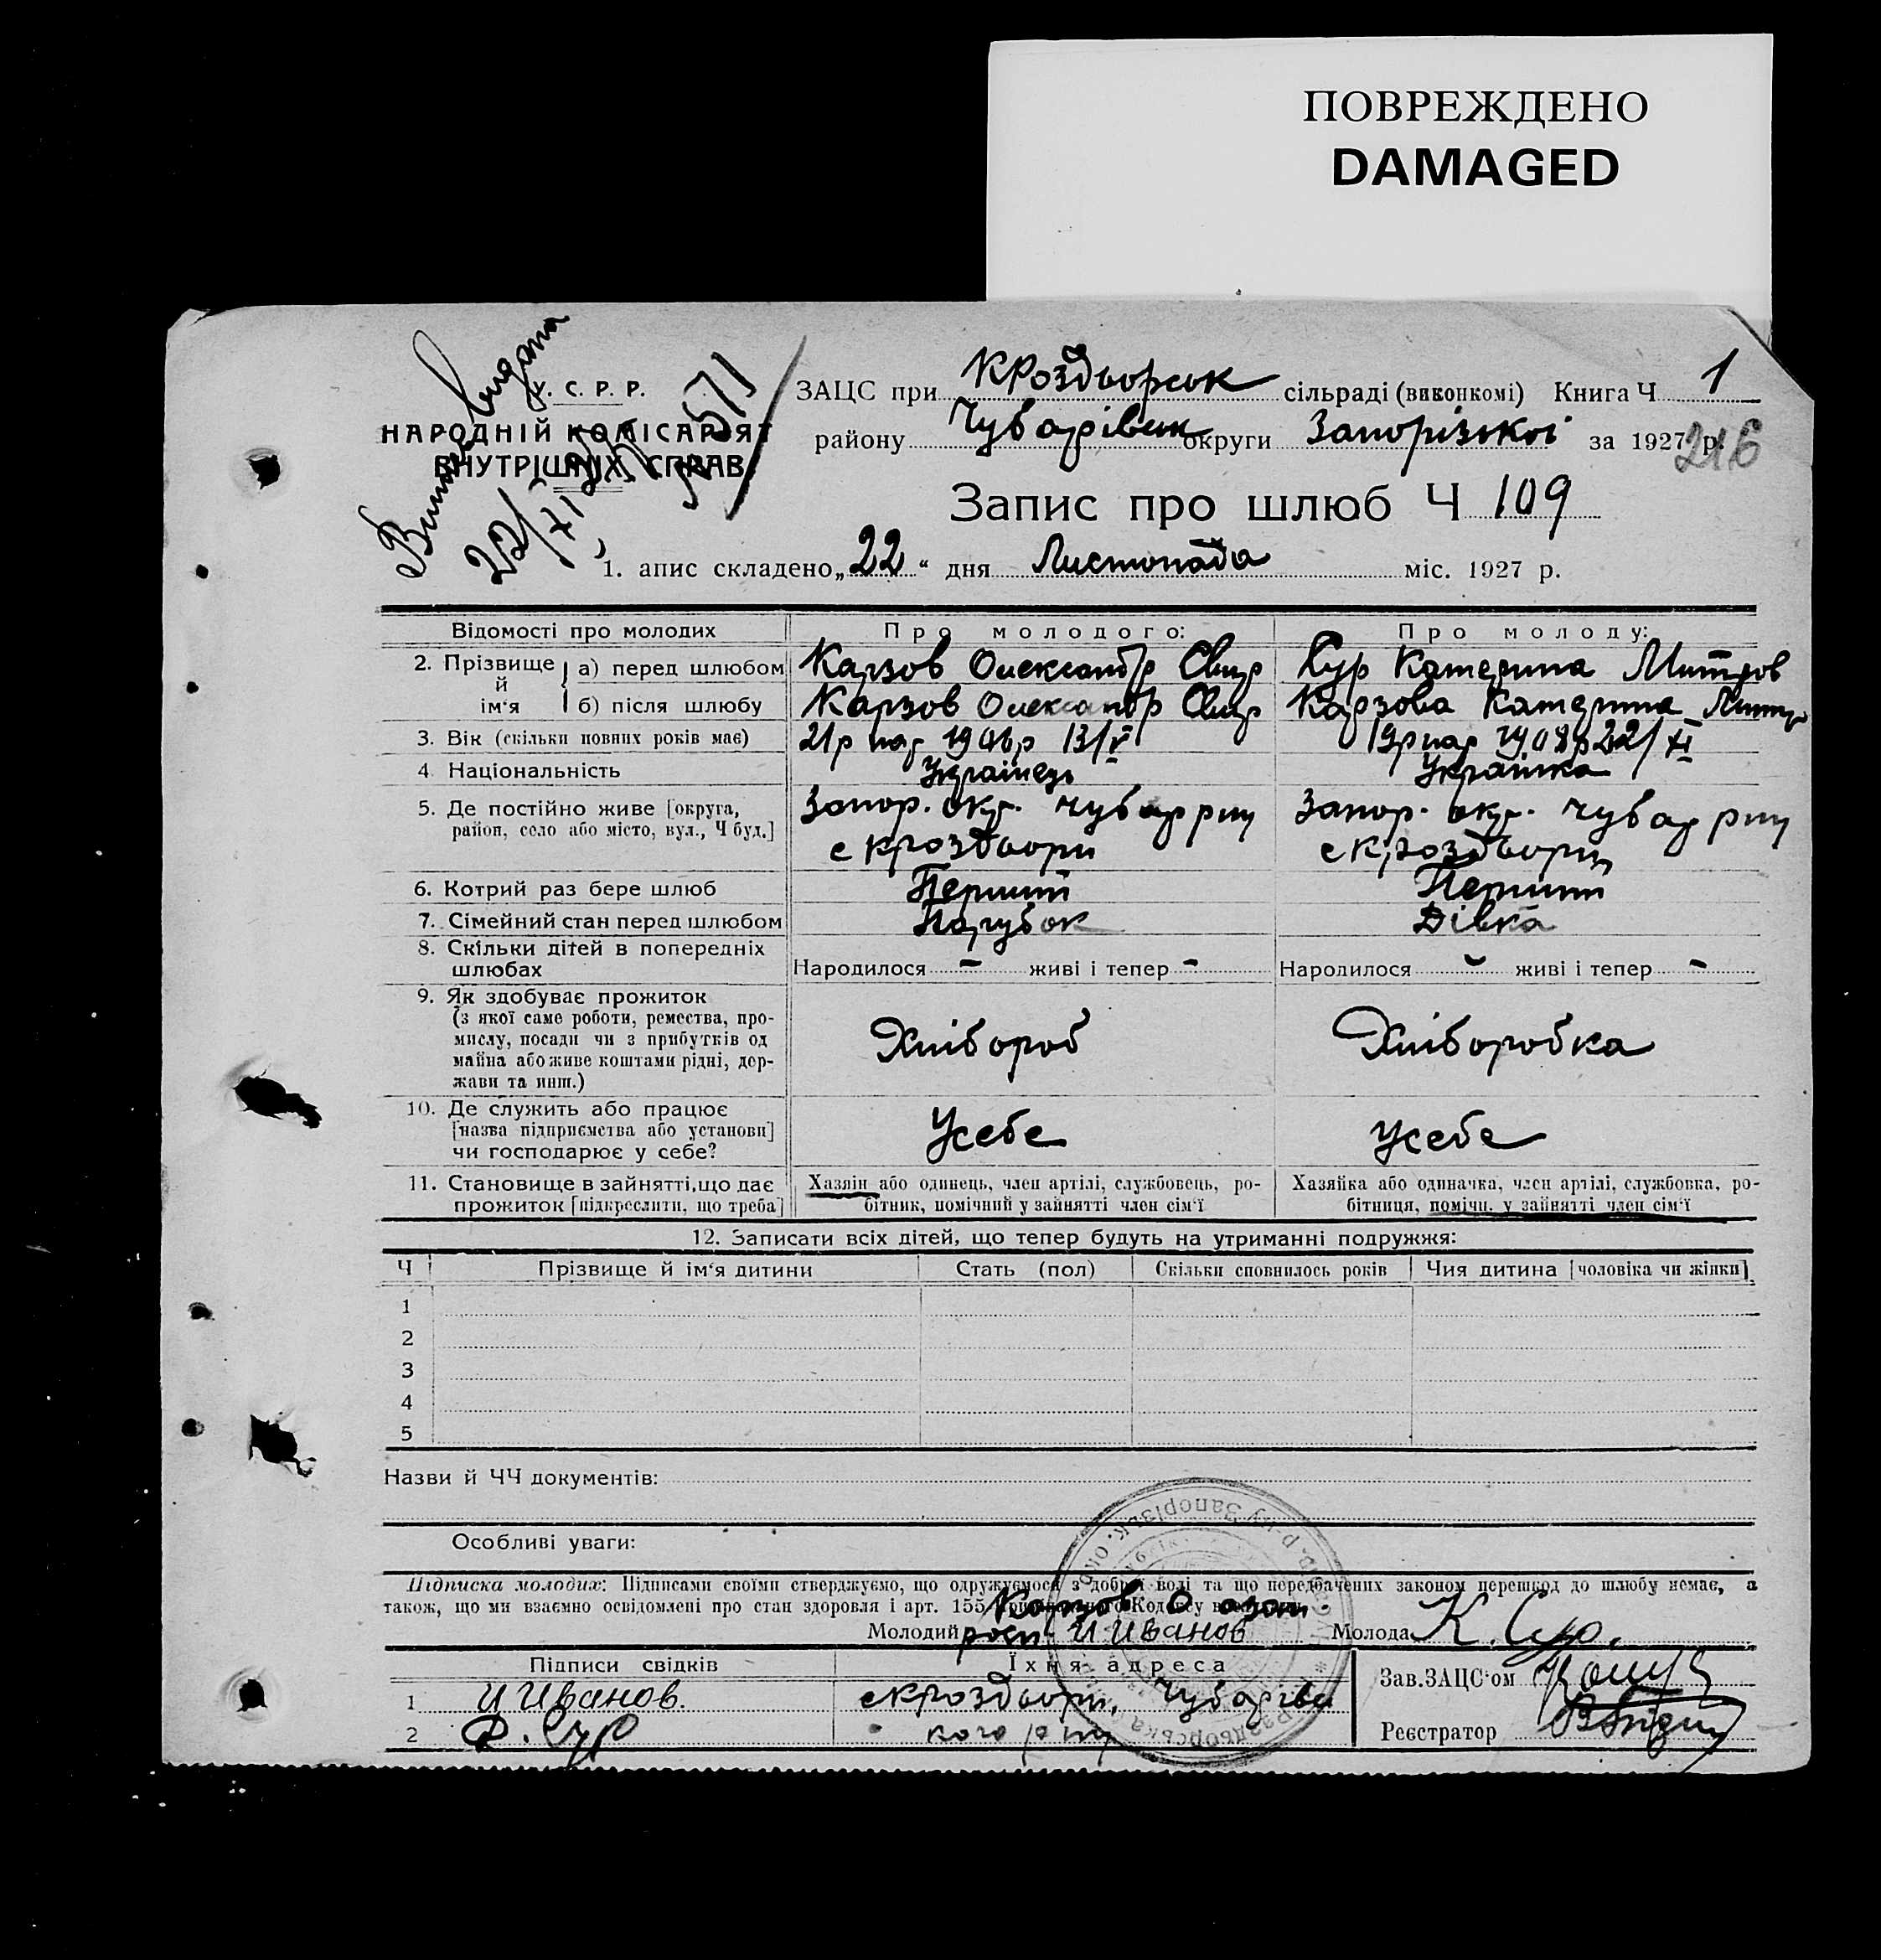 ПОВРЕЖДЕНО
DAMAGED
У. С. Р. Р.
НАРОДНІЙ КОМІСАРІЯТ
ВНУТРІШНІХ СПРАВ
Виписка видана
22/XI
ЗАЦС при КРоздворськ сільраді (виконкомі) Книга Ч 1
району Чубарівськ округи Запорізької за 1927 р.
216
Запис про шлюб Ч 109
1. апис складено „22“ дня Листопада міс. 1927 р.
Відомості про молодих Про молодого: Про молоду:
2. Прізвище й ім‘я а) перед шлюбом Карзов Олександр Свир Кур Катерина Митров
б) після шлюбу Карзов Олександр Свир Карзова Катерина Митр
3. Вік (скільки повних років має) 21р нар 1906р 13/V 19р нар 1908р 22/XI
4. Національність Українець Українка
5. Де постійно живе [округа, Запор. окр. Чубар рну Запор. окр. Чубар рну
район, село або місто, вул., Ч буд.] с кроздвори с кроздвори
6. Котрий раз бере шлюб Перший Перший
7. Сімейний стан перед шлюбом Парубок Дівка
8. Скільки дітей в попередніх
шлюбах Народилося - живі і тепер - Народилося - живі і тепер -
9. Як здобуває прожиток
(з якої саме роботи, ремества, про-
мислу, посади чи з прибутків од Хлібороб Хліборобка
майна або живе коштами рідні, дер-
жави та инш.)
10. Де служить або працює
[назва підприємства або установи] Усебе Усебе
чи господарює у себе?
11. Становище в зайнятті, що дає Хазяїн або одинець, член артілі, службовець, ро- Хазяйка або одиначка, член артілі, службовка, ро-
прожиток [підкреслити, що треба] бітник, помічний у зайнятті член сім‘ї бітниця, помічн. у зайнятті член сім‘ї
12. Записати всіх дітей, що тепер будуть на утриманні подружжя:
Ч Прізвище й ім‘я дитини Стать (пол) Скільки сповнилось років Чия дитина [чоловіка чи жінки]
1
2
3
4
5
Назви й ЧЧ документів:
Особливі уваги:
Підписка молодих: Підписами своїми стверджуємо, що одружуємося з доброї волі та що передбачених законом перешкод до шлюбу немає, а
також, що ми взаємно освідомлені про стан здоровля і арт. 155 Кодексу
Карзов О
Молодий И Иванов Молода К. Кур.
Підписи свідків Їхня адреса Зав. ЗАЦС‘ом
1 И Иванов. с кроздвори, Чубарівсь
2 Ф. Кур кого рну Реєстратор